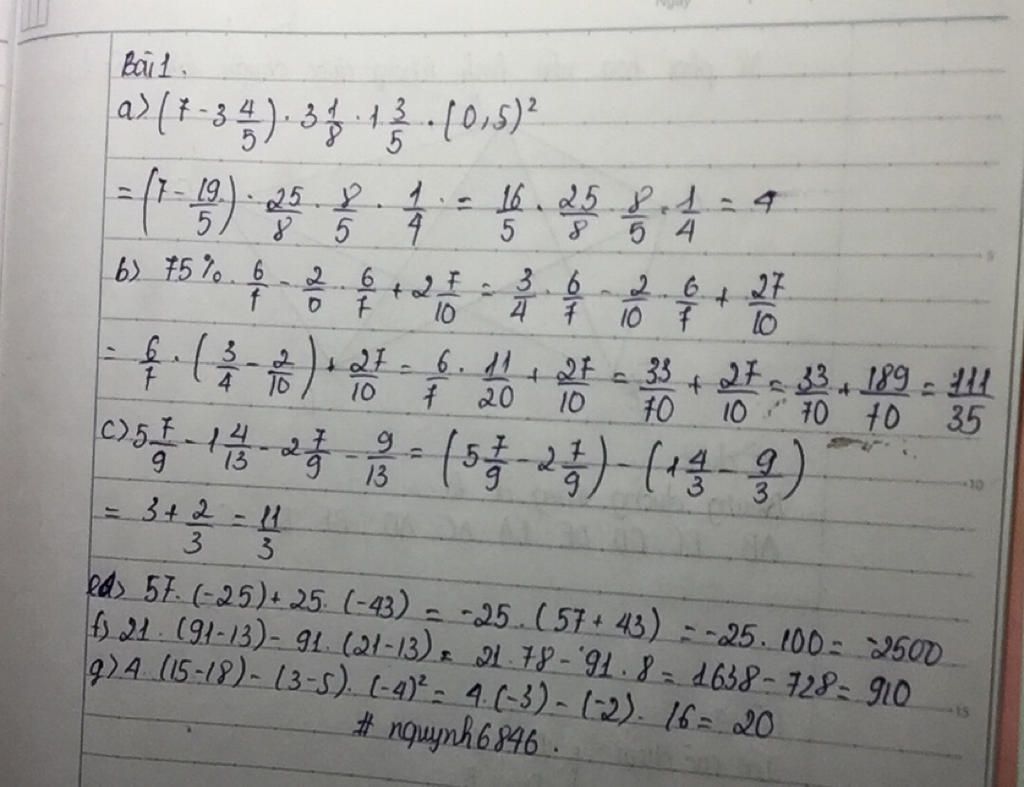 Bài 1.
a) (7 - 3 4/5) . 3 1/8 . 1 3/5 . (0,5)²
= (7 - 19/5) . 25/8 . 8/5 . 1/4 . = 16/5 . 25/8 . 8/5 . 1/4 = 4
b) 75% . 6/7 - 2/0 . 6/7 + 2 7/10 = 3/4 . 6/7 - 2/10 . 6/7 + 27/10
= 6/7 . (3/4 - 2/10) + 27/10 = 6/7 . 11/20 + 27/10 = 33/70 + 27/10 = 33/70 + 189/70 = 111/35
c) 5 7/9 - 1 4/13 - 2 7/9 - 9/13 = (5 7/9 - 2 7/9) - (1 4/3 - 9/3)
= 3 + 2/3 = 11/3
d) 57 . (-25) + 25 . (-43) = -25 . (57 + 43) = -25 . 100 = -2500
f) 21 . (91 - 13) - 91 . (21 - 13) = 21 . 78 - 91 . 8 = 1638 - 728 = 910
g) 4 . (15 - 18) - (3 - 5) . (-4)² = 4 . (-3) - (-2) . 16 = 20
# nquynh6846 .